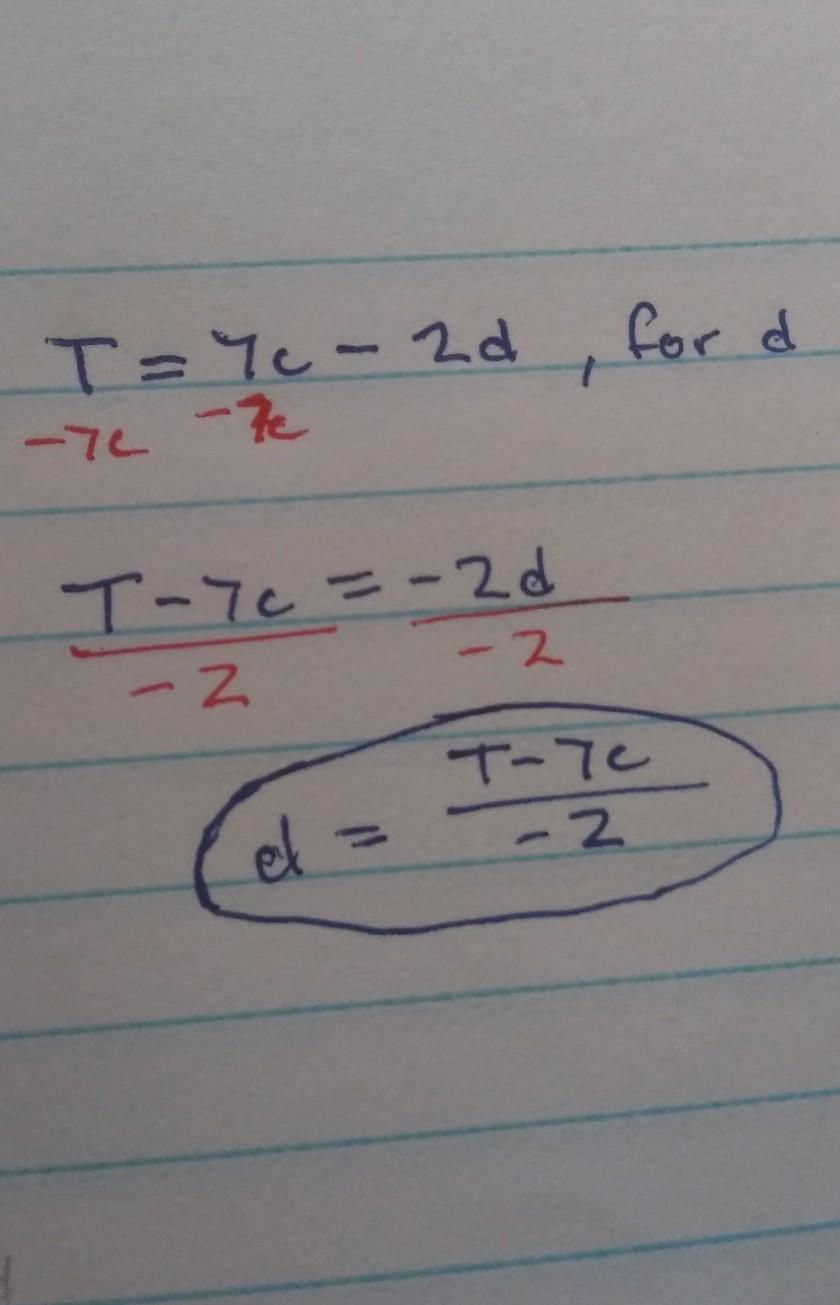 T = 7c - 2d , for d
-7c -7c
T - 7c = -2d
-2 -2
T - 7c
d =
-2